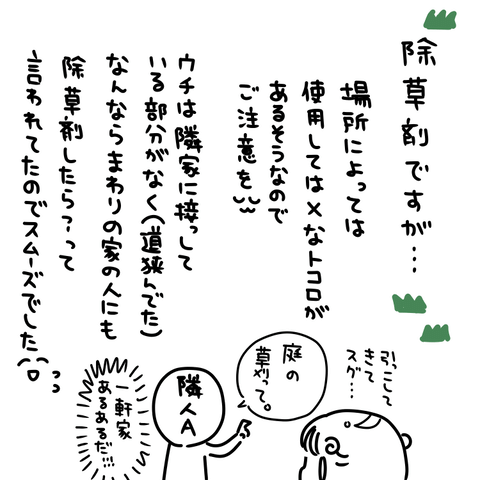 除草剤ですが…
場所によっては
使用しては×なトコロが
あるそうなので
ご注意を
ウチは隣家に接して
いる部分がなく(道挟んでた)
なんならまわりの家の人にも
除草剤したら？って
言われてたのでスムーズでした
引っこして
きて
スグ…
庭の
草刈って。
隣人A
一軒家
あるあるだ!!!